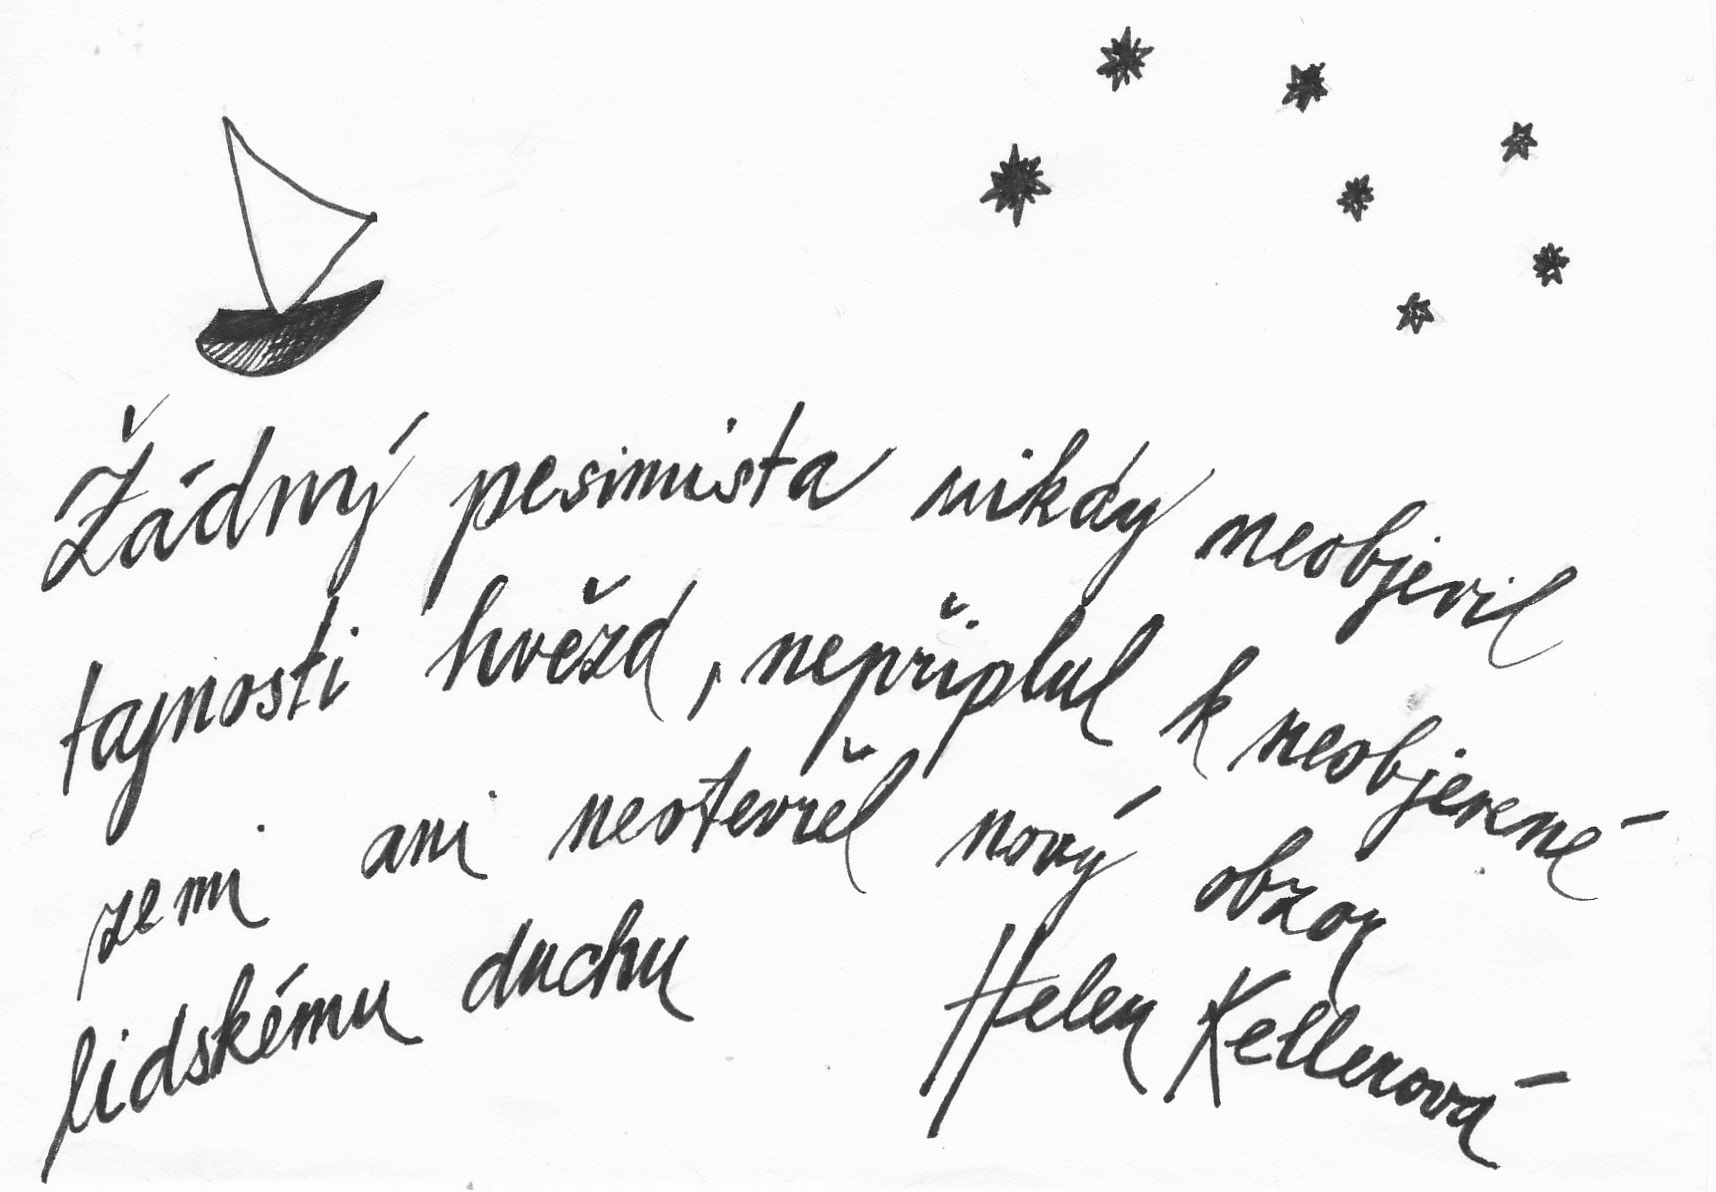 Žádný pesimista nikdy neobjevil
tajnosti hvězd, nepřiplul k neobjevené
zemi ani neotevřel nový obzor
lidskému duchu
Helen Kellerová